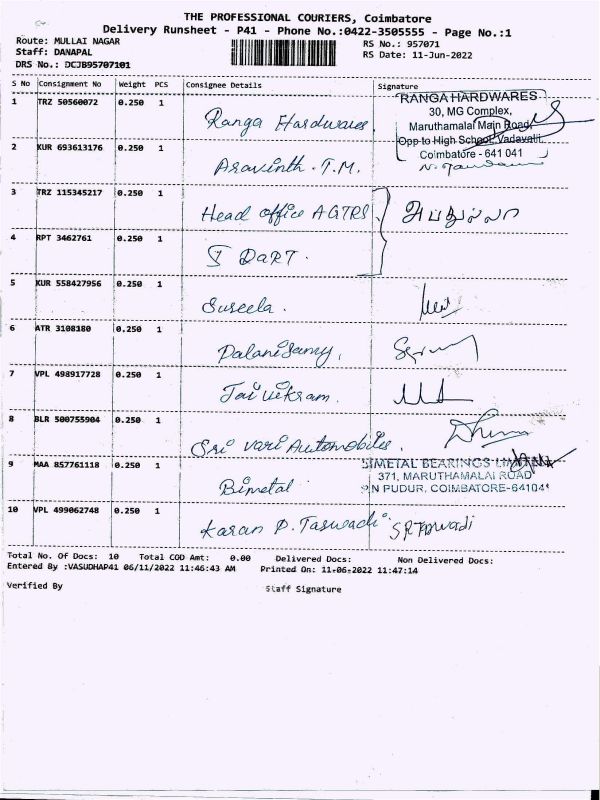 THE PROFESSIONAL COURIERS, Coimbatore
Delivery Runsheet - P41 - Phone No.:0422-3505555 - Page No.:1
Route: MULLAI NAGAR
RS No.: 957071
Staff: DANAPAL
RS Date: 11-Jun-2022
DRS No.: DCJB95707101
S No Consignment No Weight PCS Consignee Details Signature
1 TRZ 50560072 0.250 1 Ranga Hardwares.
RANGA HARDWARES
30, MG Complex,
Maruthamalai Main Road,
Opp to High School, Vadavalli,
Coimbatore - 641 041
2 KUR 693613176 0.250 1 Aravinth . T.M.
3 TRZ 115345217 0.250 1 Head office AGTRS
4 RPT 3462761 0.250 1 DART.
5 KUR 558427956 0.250 1 Suseela .
6 ATR 3108180 0.250 1 Palanisamy,
7 VPL 498917728 0.250 1 Jai vikram.
8 BLR 500755904 0.250 1 Sri vari Automobiles.
9 MAA 857761118 0.250 1 Bimetal
BIMETAL BEARINGS LIMITED
371, MARUTHAMALAI ROAD
P.N PUDUR, COIMBATORE-641041
10 VPL 499062748 0.250 1 Karan P. Taswadi
Total No. Of Docs: 10 Total COD Amt: 0.00 Delivered Docs: Non Delivered Docs:
Entered By :VASUDHAP41 06/11/2022 11:46:43 AM Printed On: 11-06-2022 11:47:14
Verified By Staff Signature